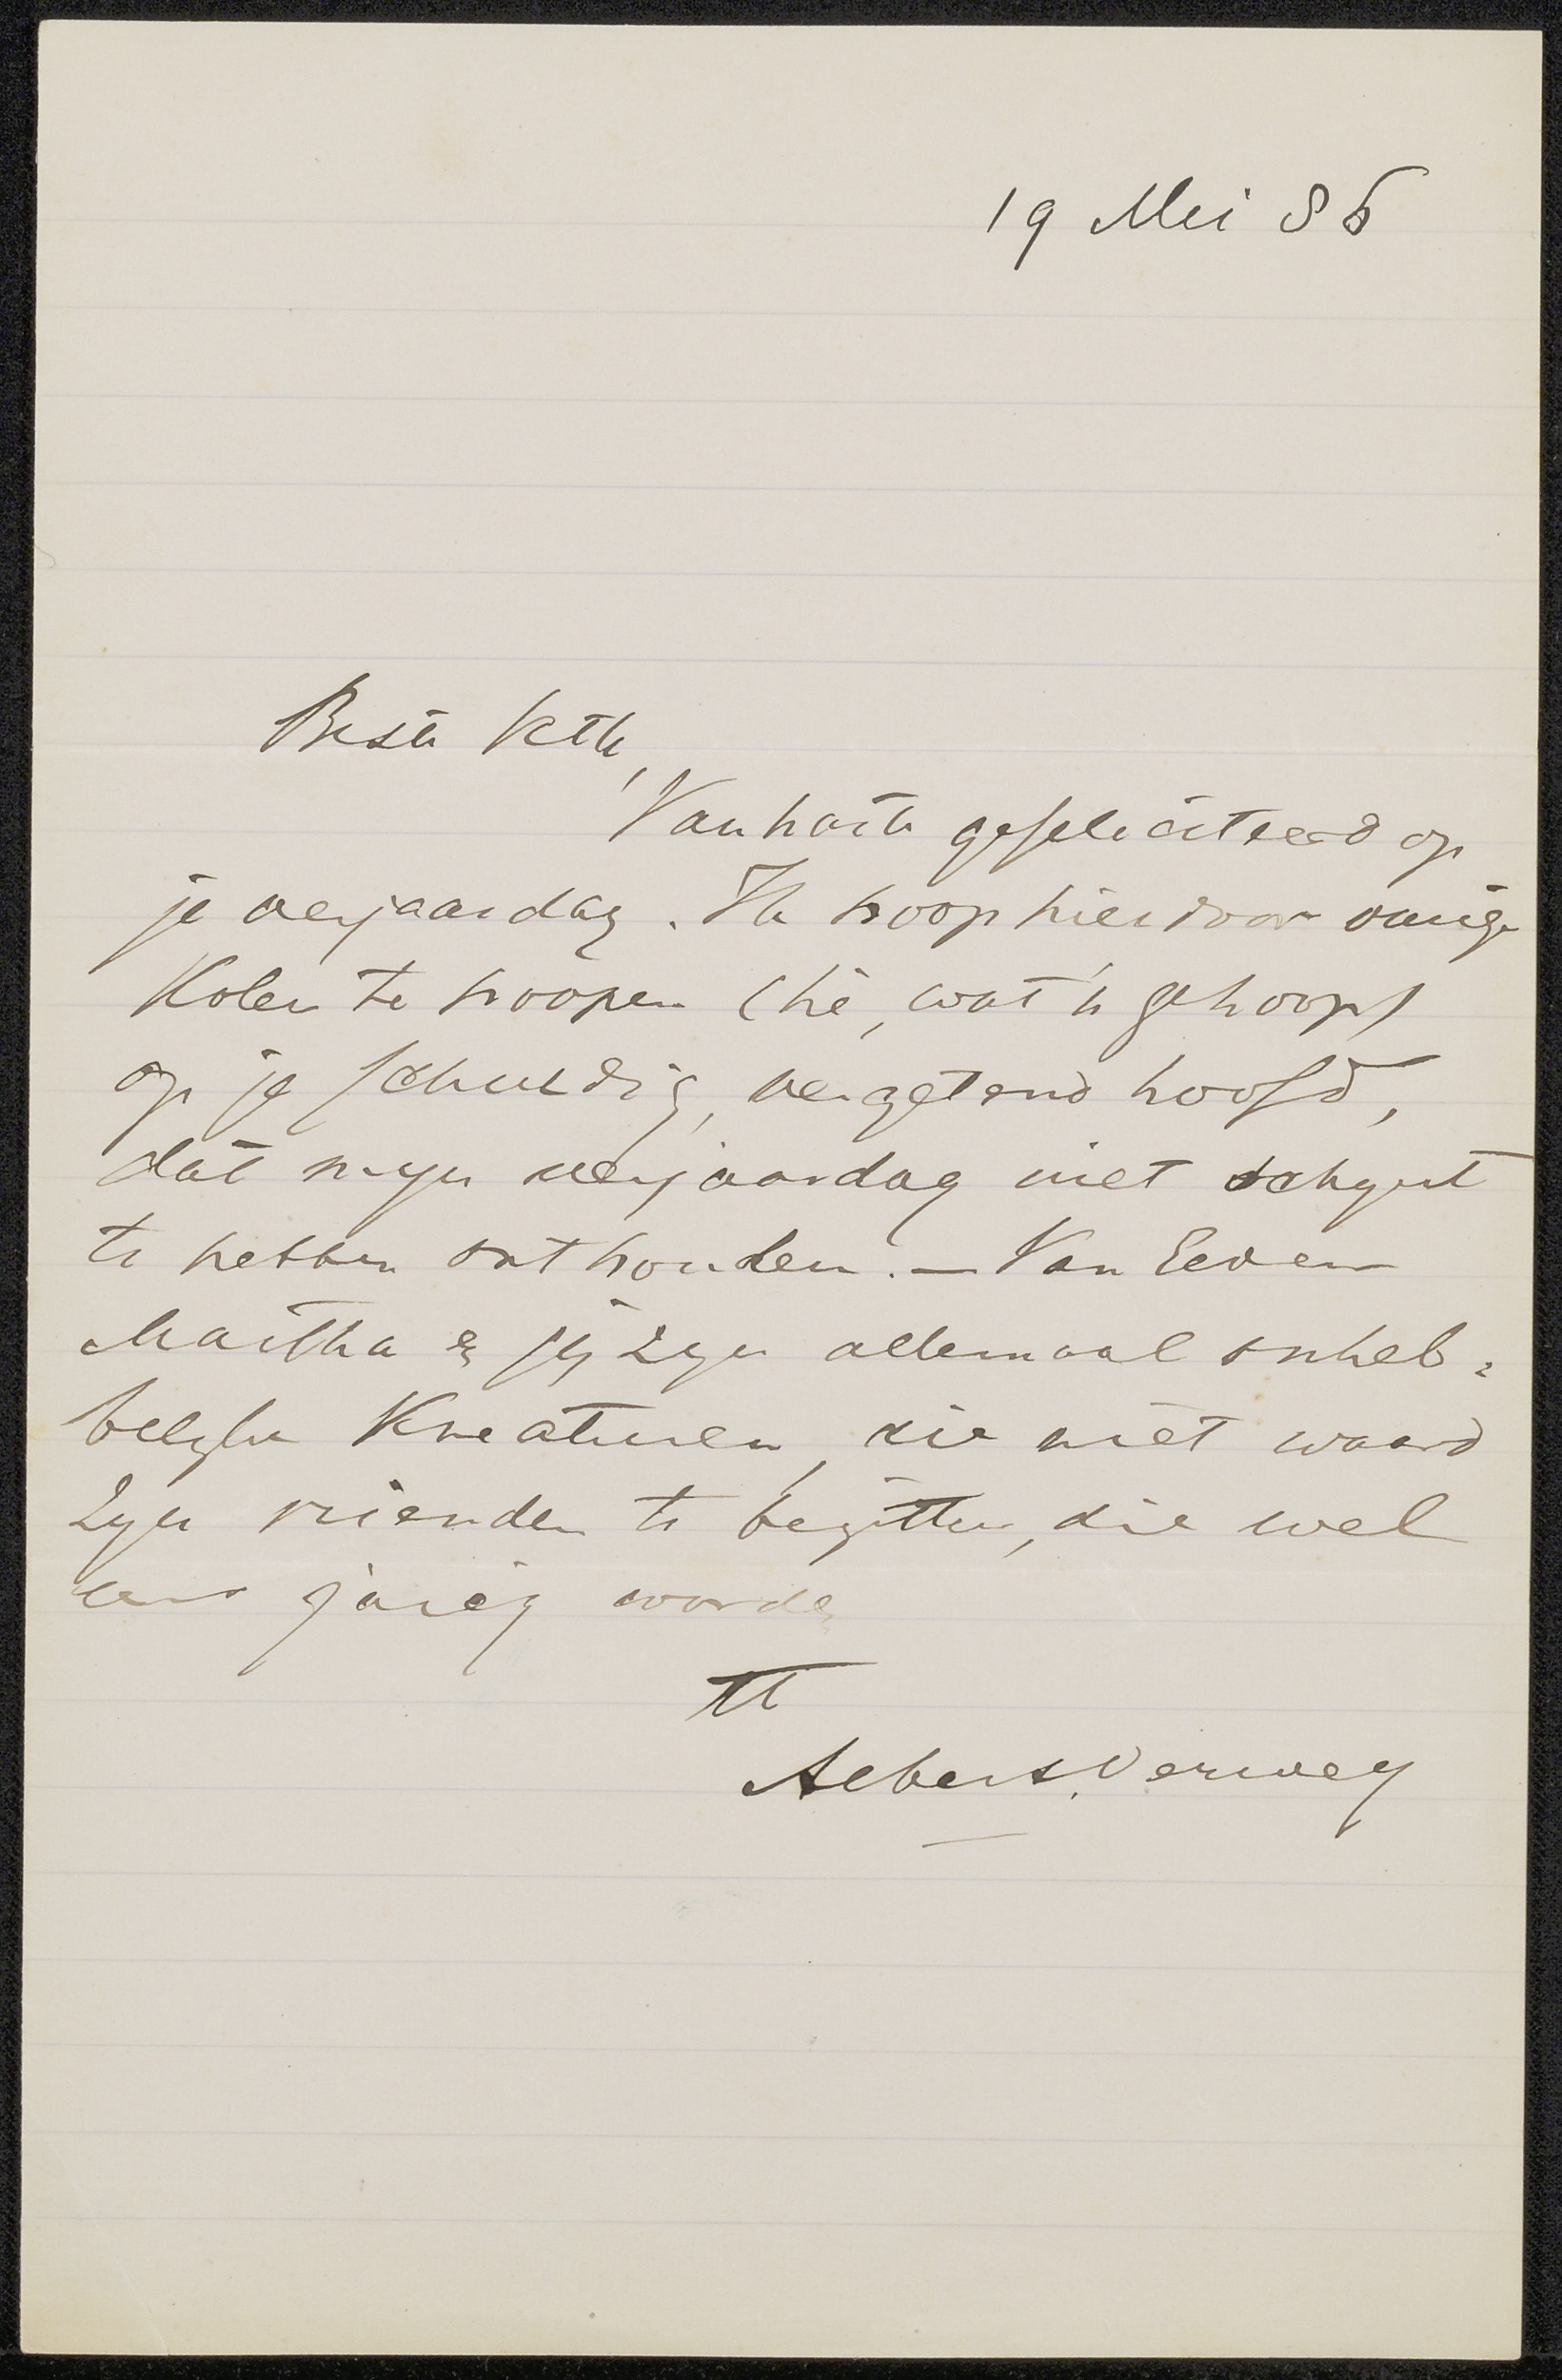 19 Mei 86
Beste Veth,
Van harte gefeliciteerd op
je verjaardag. Ik hoop hierdoor vurige
Kolen te hoopen (hè, wat 'n gehoop)
op je schuldig, vergetend hoofd,
dat mijn verjaardag niet schijnt
te hebben onthouden. — Van Eeden
Martha & jij zijn allemaal onheb-
belijke Kreaturen, die niet waard
zijn vrienden te bezitten, die wel
eens jarig worden
tt
Albert Verwey